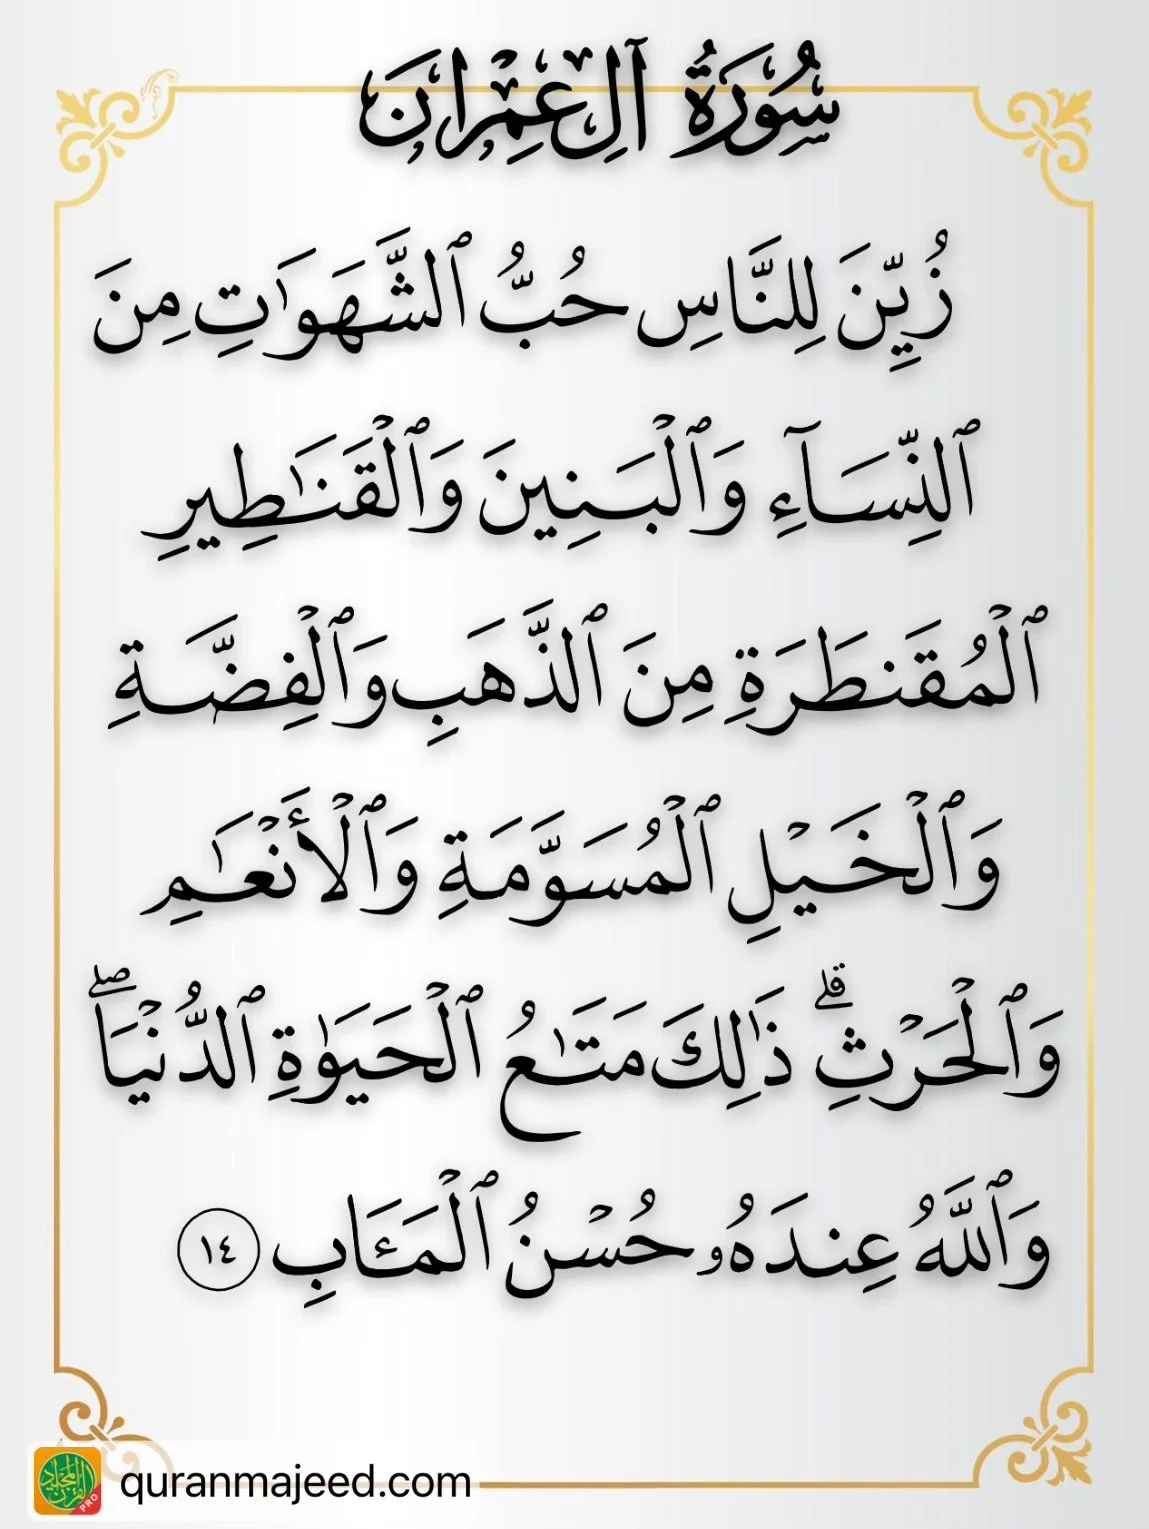 سُورَةُ آلِ عِمْرَانَ
زُيِّنَ لِلنَّاسِ حُبُّ ٱلشَّهَوَٰتِ مِنَ
ٱلنِّسَآءِ وَٱلْبَنِينَ وَٱلْقَنَـٰطِيرِ
ٱلْمُقَنطَرَةِ مِنَ ٱلذَّهَبِ وَٱلْفِضَّةِ
وَٱلْخَيْلِ ٱلْمُسَوَّمَةِ وَٱلْأَنْعَـٰمِ
وَٱلْحَرْثِ ۗ ذَٰلِكَ مَتَـٰعُ ٱلْحَيَوٰةِ ٱلدُّنْيَا ۖ
وَٱللَّهُ عِندَهُۥ حُسْنُ ٱلْمَـَٔابِ ١٤
القرآن المجيد
PRO
quranmajeed.com